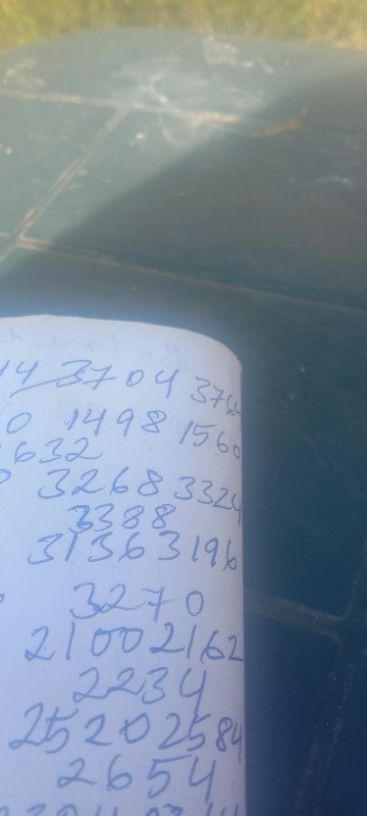 14 3704 3764
0 1498 1560
632
3268 3324
3388
3136 3196
3270
2100 2162
2234
2520 2584
2654